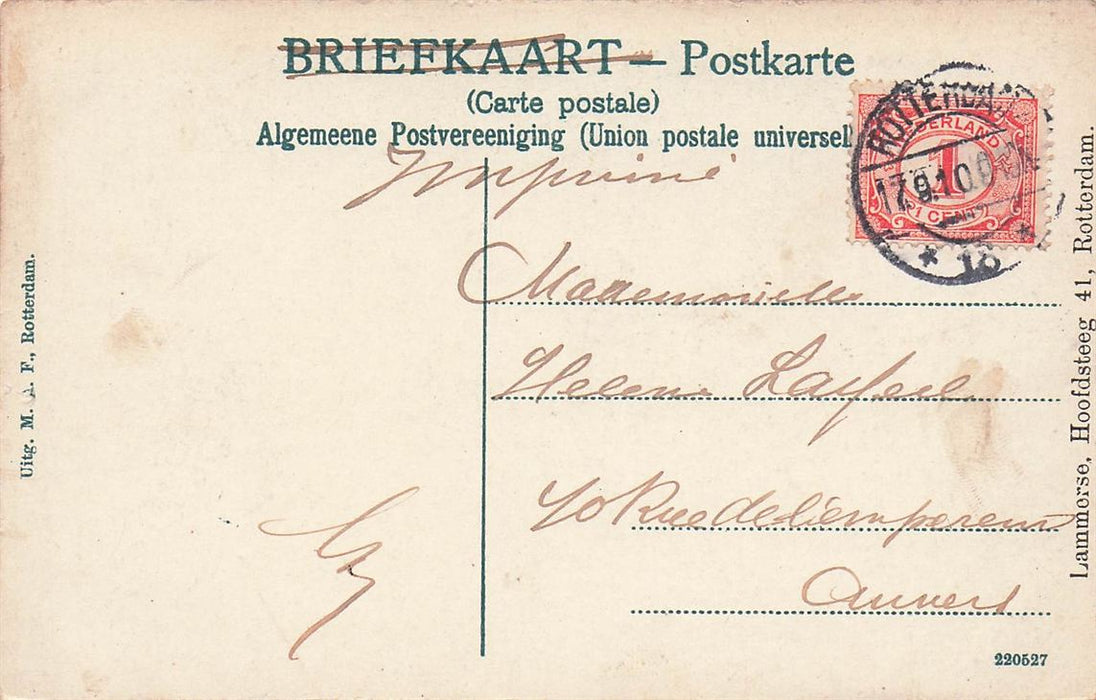 BRIEFKAART — Postkarte
(Carte postale)
Algemeene Postvereeniging (Union postale universel
Imprimé
ROTTERDAM
17.9.10
* 18 *
NEDERLAND
1
1 CENT
Mademoiselle
Helene
40 Rue de l'empereur
Anvers
Uitg. M. A. F., Rotterdam.
Lammerse, Hoofdsteeg 41, Rotterdam.
220527